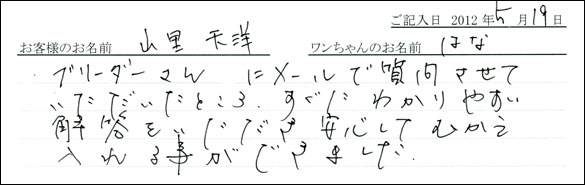 ご記入日 2012年5月19日
お客様のお名前 山里 天洋 ワンちゃんのお名前 はな
ブリーダーさん にメールで質問させて
いただいたところ、すぐに わかりやすい
解答をいただき 安心して むかえ
入れる事ができました。